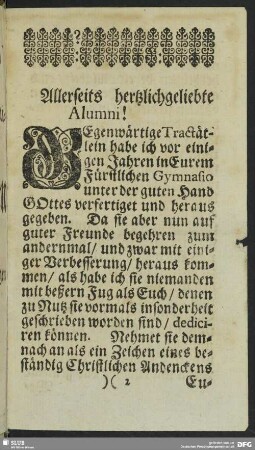 Allerseits hertzlichgeliebte
Alumni!
GEgenwärtige Tractät-
lein habe ich vor eini-
gen Jahren in Eurem
Fürstlichen Gymnasio
unter der guten Hand
GOttes verfertiget und heraus
gegeben. Da sie aber nun auf
guter Freunde begehren zum
andernmal/ und zwar mit eini-
ger Verbesserung/ heraus kom-
men/ als habe ich sie niemanden
mit beßern Fug als Euch/ denen
zu Nutz sie vormals insonderheit
geschrieben worden sind/ dedici-
ren können. Nehmet sie dem-
nach an als ein Zeichen eines be-
ständig Christlichen Andenckens
)( 2 Eu-
SLUB
DFG